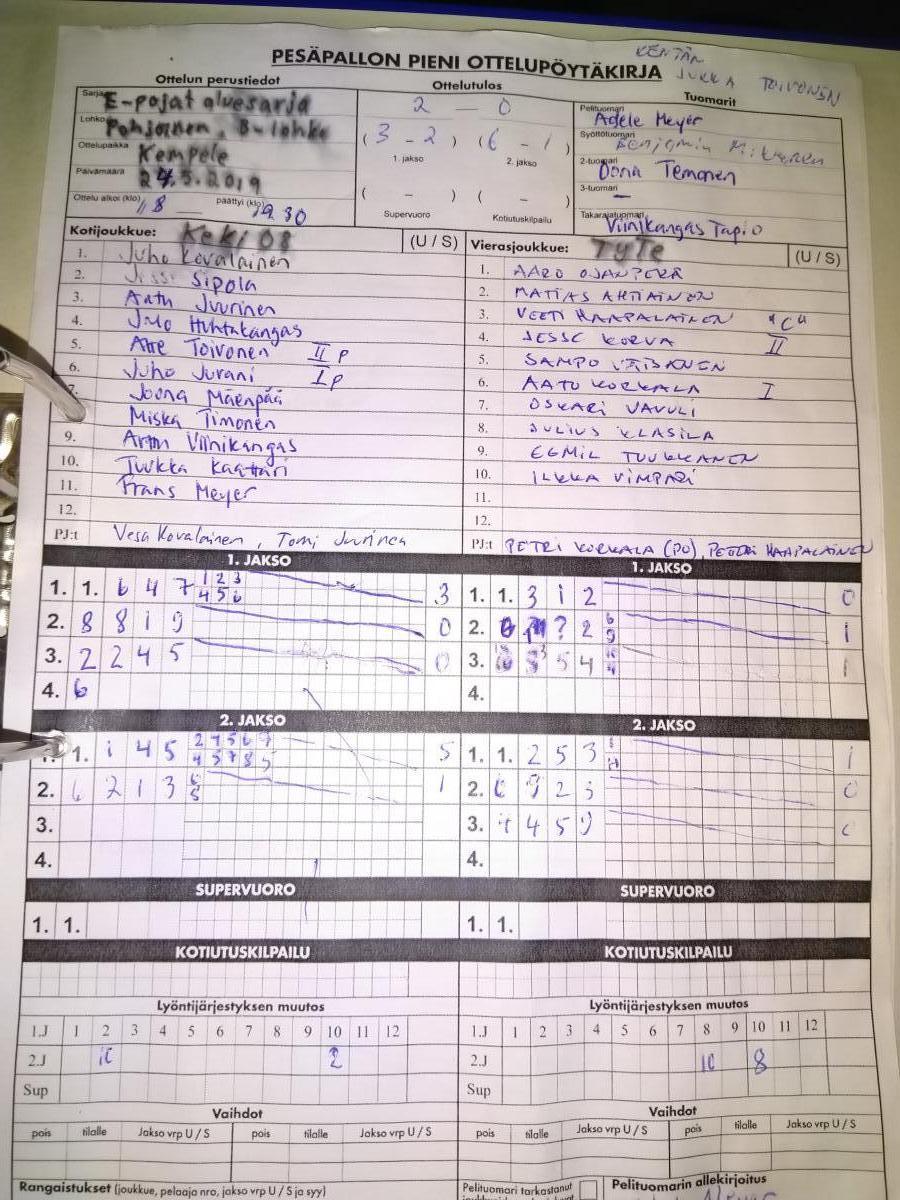 KENTÄN
JUKKA TOIVONEN
PESÄPALLON PIENI OTTELUPÖYTÄKIRJA
Ottelun perustiedot
Sarja E-pojat aluesarja
Lohko Pohjoinen, B-lohko
Ottelupaikka Kempele
Päivämäärä 24.5.2019
Ottelu alkoi (klo) 18 päättyi (klo) 19.30
Ottelutulos
2 - 0
(3 - 2) (6 - 1)
1. jakso 2. jakso
( - ) ( - )
Supervuoro Kotiutuskilpailu
Tuomarit
Pelituomari Adele Meyer
Syöttötuomari Benjamin
2-tuomari Oona Temonen
3-tuomari -
Takarajatuomari Viinikangas Tapio
Kotijoukkue: KeKi 08 (U / S)
1. Juho Kovalainen
2. Jessi Sipola
3. Antti Juurinen
4. Juho Huhtakangas
5. Atte Toivonen II p
6. Juho Jurani I p
7. Joona Mäenpää
Miska Timonen
9. Arttu Viinikangas
10. Tuukka Kaattari
11. Frans Meyer
12.
PJ:t Vesa Kovalainen, Tomi Juurinen
Vierasjoukkue: TyTe (U / S)
1. AARO OJANPERÄ
2. MATIAS AHTIAINEN
3. VEETI HAAPALAINEN "C"
4. JESSE KORVA II
5. SAMPO VÄISÄNEN
6. AATU KORKALA I
7. OSKARI VAVULI
8. JULIUS KLASILA
9. EEMIL TUUKKANEN
10. ILKKA VIMPARI
11.
12.
PJ:t PETRI KORKALA (PJ), PETERI HAAPALAINEN
1. JAKSO
1. 1. 6 4 7 1 2 3 3
4 5 6
2. 8 8 1 9 0
3. 2 2 4 5 0
4. 6
1. JAKSO
1. 1. 3 1 2 0
2. ? 2 6 1
9
3. 5 4 1
4.
2. JAKSO
1. 1. 1 4 5 2 4 5 6 7 5
4 5 7 8 9
2. 6 2 1 3 6 1
5
3.
4.
2. JAKSO
1. 1. 2 5 3 1
2. 9 2 3 0
3. 4 4 5 9 0
4.
SUPERVUORO
1. 1.
SUPERVUORO
1. 1.
KOTIUTUSKILPAILU
KOTIUTUSKILPAILU
Lyöntijärjestyksen muutos
1.J 1 2 3 4 5 6 7 8 9 10 11 12
2.J 10 2
Sup
Lyöntijärjestyksen muutos
1.J 1 2 3 4 5 6 7 8 9 10 11 12
2.J 10 8
Sup
Vaihdot
pois tilalle Jakso vrp U / S pois tilalle Jakso vrp U / S
Vaihdot
pois tilalle Jakso vrp U / S pois tilalle Jakso vrp U / S
Rangaistukset (joukkue, pelaaja nro, jakso vrp U / S ja syy)
Pelituomari tarkastanut
Pelituomarin allekirjoitus